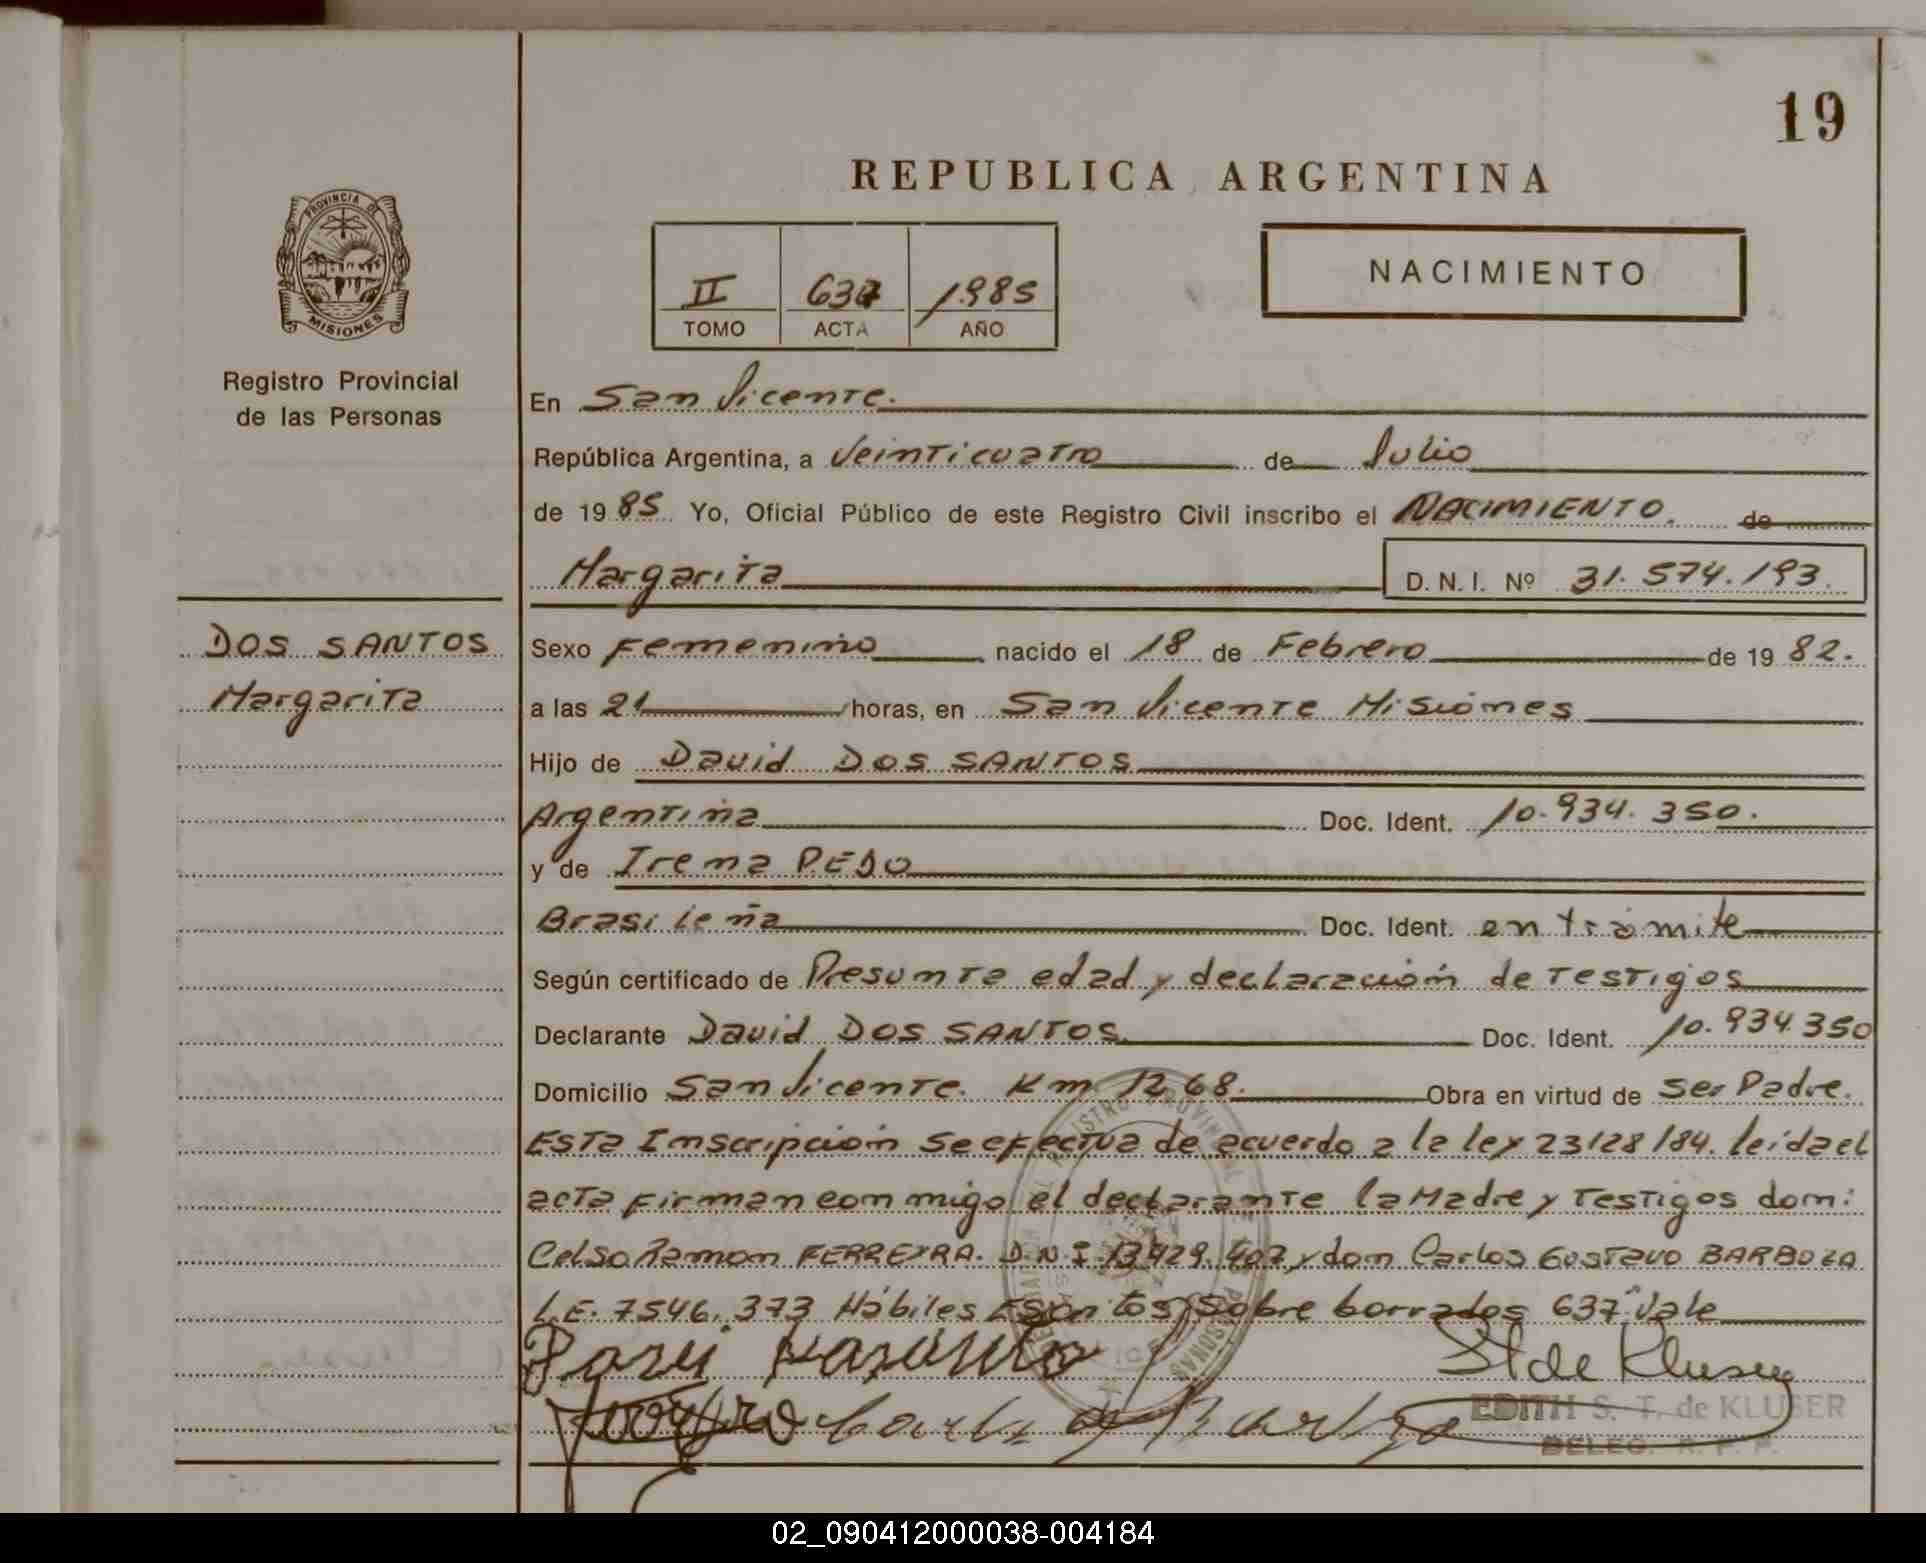 19
REPUBLICA ARGENTINA
PROVINCIA DE
MISIONES
II 637 1985
TOMO ACTA AÑO
NACIMIENTO
Registro Provincial
de las Personas
En San Vicente.
República Argentina, a Veinticuatro de Julio
de 1985 Yo, Oficial Público de este Registro Civil inscribo el NACIMIENTO. de
Margarita D. N. I. Nº 31.574.193.
DOS SANTOS
Margarita
Sexo Femenino nacido el 18 de Febrero de 1982.
a las 21 horas, en San Vicente Misiones
Hijo de David DOS SANTOS
Argentina Doc. Ident. 10.934.350.
y de Irema PEDO
Brasileña Doc. Ident. en trámite
Según certificado de Presunta edad y declaración de testigos
Declarante David DOS SANTOS Doc. Ident. 10.934.350
Domicilio San Vicente. Km. 1268. Obra en virtud de ser Padre.
Esta Inscripción se efectua de acuerdo a la ley 23128/84. leída el
acta firman conmigo el declarante la Madre y Testigos don:
Celso Ramon FERREYRA. D.N.I. 13.429.407 y don Carlos Gustavo BARBOZA
L.E. 7546.373 Hábiles Escritos Sobre borrados 637" Vale
St de Kluser
EDITH S. T. de KLUSER
DELEG. R. P. P.
02_090412000038-004184